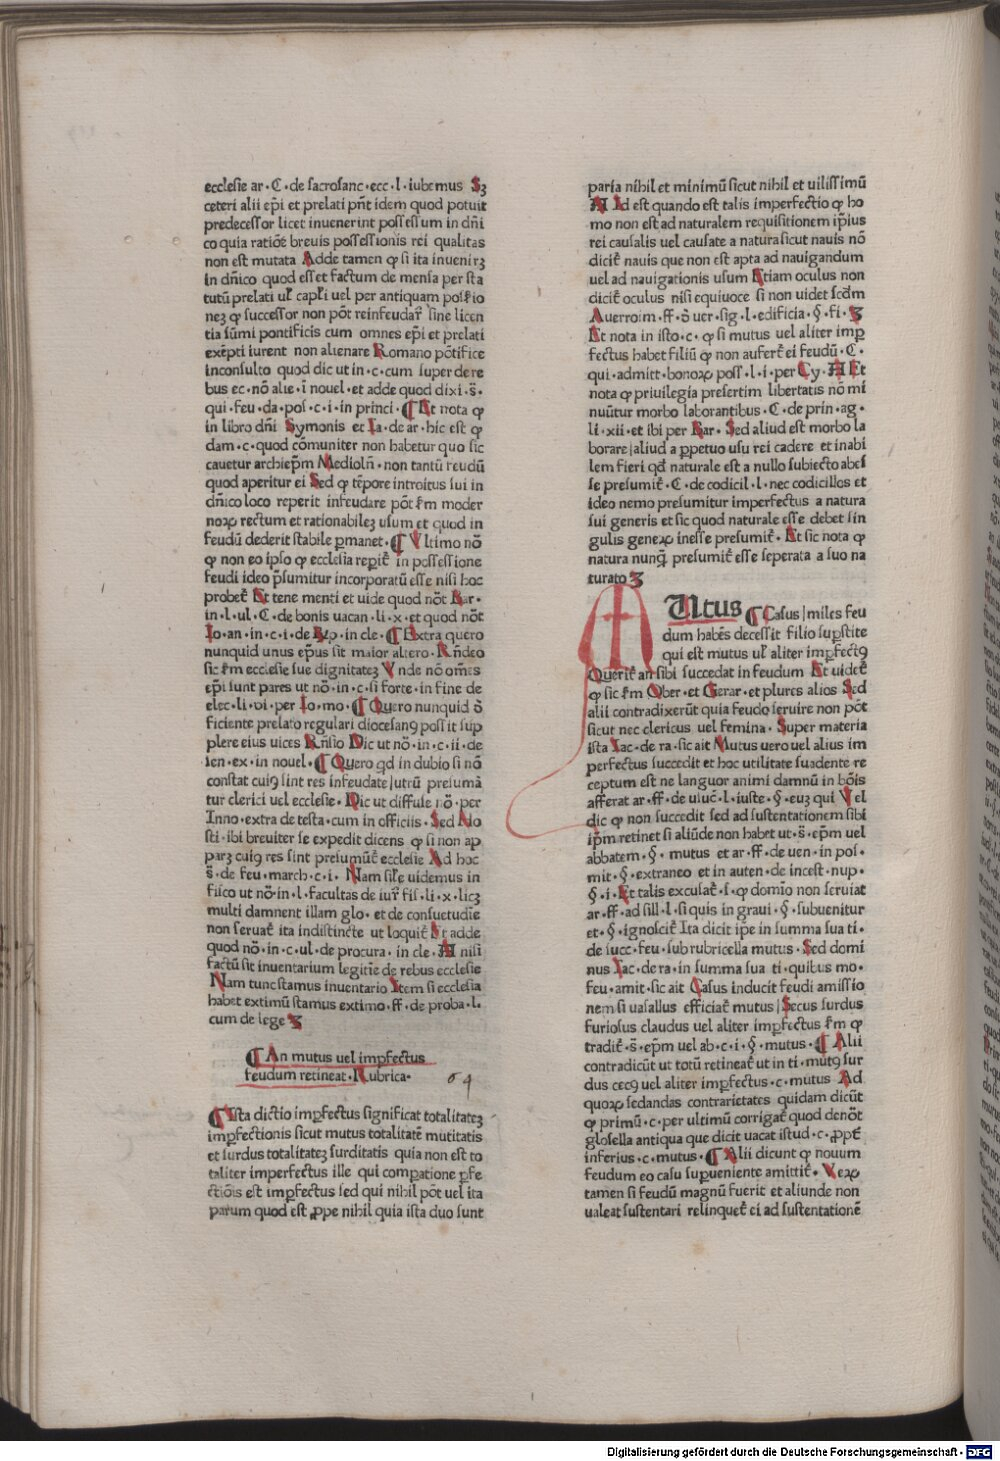 ecclesie ar · C · de sacrosanc · ecc · l · iubemus Sꝫ
ceteri alii ep̄i et prelati pn̄t idem quod potuit
predecessor licet inuenerint possessum in dn̄i
co quia ratiōe breuis possessionis rei qualitas
non est mutata Adde tamen ꝙ si ita inueniꝛꝫ
in dn̄ico quod esset factum de mensa per sta
tutū prelati ul̄ capl̄i uel per antiquam possio
neꝫ ꝙ successor non pōt reinfeudar̄ sine licen
tia sūmi pontificis cum omnes ep̄i et prelati
exēpti iurent non alienare Romano pōtifice
inconsulto quod dic ut in · c · cum super de re
bus ec · nō alie · ī nouel · et adde quod dixi · s̄ ·
qui · feu · da · pos · c · i · in princi · ¶ Et nota ꝙ
in libro dn̄i Symonis et Ja · de ar · hic est ꝙ
dam · c · quod cōmuniter non habetur quo sic
cauetur archiep̄m Medioln̄ · non tantū feudū
quod aperitur ei Sed ꝙ tēpore introitus sui in
dn̄ico loco reperit infeudare pōt s̄m moder
noꝝ rectum et rationabileꝫ usum et quod in
feudū dederit stabile ꝑmanet · ¶ Vltimo nō
ꝙ non eo ipso ꝙ ecclesia repit̄ in possessione
feudi ideo p̄sumitur incorporatū esse nisi hoc
probet̄ Et tene menti et uide quod nōt Bar ·
in · l · ul · C · de bonis uacan · li · x · et quod nōt
Jo · an · in · c · i · de · in cle · ¶ Extra quero
nunquid unus ep̄us sit maior altero · Rn̄deo
sic s̄m ecclesie sue dignitateꝫ Vnde nō om̄es
ep̄i sunt pares ut nō · in · c · si forte · in fine de
elec · li · vi · per Jo · mo · ¶ Quero nunquid d̄
ficiente prelato regulari diocesanꝰ possit sup
plere eius uices Rn̄sio Dic ut nō · in · c · ii · de
sen · ex · in nouel · ¶ Quero qd in dubio si nō
constat cuiꝰ sint res infeudate / utrū presumā
tur clerici uel ecclesie · Dic ut diffuse nō · per
Inno · extra de testa · cum in officiis · Sed No
sti · ibi breuiter se expedit dicens ꝙ si non ap
parꝫ cuiꝰ res sint presumūt̄ ecclesie Ad hoc
s̄ · de feu · march · c · i · Nam sil̄e uidemus in
fisco ut nō · in · l · facultas de iur̄ fis · li · x · licꝫ
multi damnent illam glo · et de consuetudīe
non seruat̄ ita indistincte ut loquit̄ Et adde
quod nō · in · c · ul · de procura · in cle · A nisi
factū sit inuentarium legitīe de rebus ecclesie
Nam tunc stamus inuentario Item si ecclesia
habet extimū stamus extimo · ff · de proba · l ·
cum de lege Ꝫ
¶ An mutus uel imꝑfectus
feudum retineat · Rubrica ·
64
¶ Ista dictio imꝑfectus significat totalitateꝫ
imꝑfectionis sicut mutus totalitatē mutitatis
et surdus totalitateꝫ surditatis quia non est to
taliter imperfectus ille qui comparatione ꝑfe
ctiōis est imꝑfectus sed qui nihil pōt uel ita
parum quod est ꝓpe nihil quia ista duo sunt
paria nihil et minimū sicut nihil et uilissimū
A Id est quando est talis imperfectio ꝙ ho
mo non est ad naturalem requisitionem ip̄ius
rei causalis uel causate a natura sicut nauis nō
dicit̄ nauis que non est apta ad nauigandum
uel ad nauigationis usum Etiam oculus non
dicit̄ oculus nisi equiuoce si non uidet scd̄m
Auerroim · ff · d̄ uer · sig · l · edificia · § · fi · Ꝫ
Et nota in isto · c · ꝙ si mutus uel aliter imꝑ
fectus habet filiū ꝙ non aufert̄ ei feudū · C ·
qui · admitt · bonoꝝ poss · l · i · per Cy · A Et
nota ꝙ priuilegia presertim libertatis nō mi
nuūtur morbo laborantibus · C · de prin · ag ·
li · xii · et ibi per Bar · Sed aliud est morbo la
borare / aliud a ꝑpetuo usu rei cadere et inabi
lem fieri qd̄ naturale est a nullo subiecto abes
se presumit̄ · C · de codicil · l · nec codicillos et
ideo nemo presumitur imperfectus a natura
sui generis et sic quod naturale esse debet sin
gulis geneꝝ inesse presumit̄ · Et sic nota ꝙ
natura nunꝗ presumit̄ esse seperata a suo na
turato Ꝫ
MUtus ¶ Casus / miles feu
dum habēs decessit filio suꝑstite
qui est mutus ul̄ aliter imꝑfectꝰ
Querit̄ an sibi succedat in feudum Et uidet̄
ꝙ sic s̄m Ober · et Gerar · et plures alios Sed
alii contradixerūt quia feudo seruire non pōt
sicut nec clericus uel femina · Super materia
ista Jac · de ra · sic ait Mutus uero uel alius im
perfectus succedit et hoc utilitate suadente re
ceptum est ne languor animi damnū in bōis
afferat ar · ff · de uiuc̄ · l · iuste · § · euꝫ qui Vel
dic ꝙ non succedit sed ad sustentationem sibi
ip̄m retinet si aliūde non habet ut · s̄ · ep̄m uel
abbatem · § · mutus et ar · ff · de uen · in pos ·
mit · § · extraneo et in auten · de incest · nup ·
§ · i · Et talis excusat̄ · s · ꝙ domīo non seruiat
ar · ff · ad sill · l · si quis in graui · § · subuenitur
et · § · ignoscit̄ Ita dicit ip̄e in summa sua ti ·
de succ · feu · sub rubricella mutus · Sed domi
nus Jac · de ra · in summa sua ti · quibus mo ·
feu · amit · sic ait Casus inducit feudi amissio
nem si uasallus efficiat̄ mutus / Secus surdus
furiosus claudus uel aliter imꝑfectus s̄m ꝙ
tradit̄ · s̄ · ep̄m uel ab · c · i · § · mutus · ¶ Alii
contradicūt ut totū retineat̄ ut in ti · mutꝰ sur
dus cecꝰ uel aliter imꝑfectus · c · mutus Ad
quoꝝ sedandas contrarietates quidam dicūt
ꝙ primū · c · per ultimū corrigat̄ quod denōt
glosella antiqua que dicit uacat istud · c · ꝓpt̄
inferius · c · mutus · ¶ Alii dicunt ꝙ nouum
feudum eo casu suꝑueniente amittit̄ · Veꝝ
tamen si feudū magnū fuerit et aliunde non
ualeat sustentari relinquet̄ ei ad sustentationē
Digitalisierung gefördert durch die Deutsche Forschungsgemeinschaft - DFG